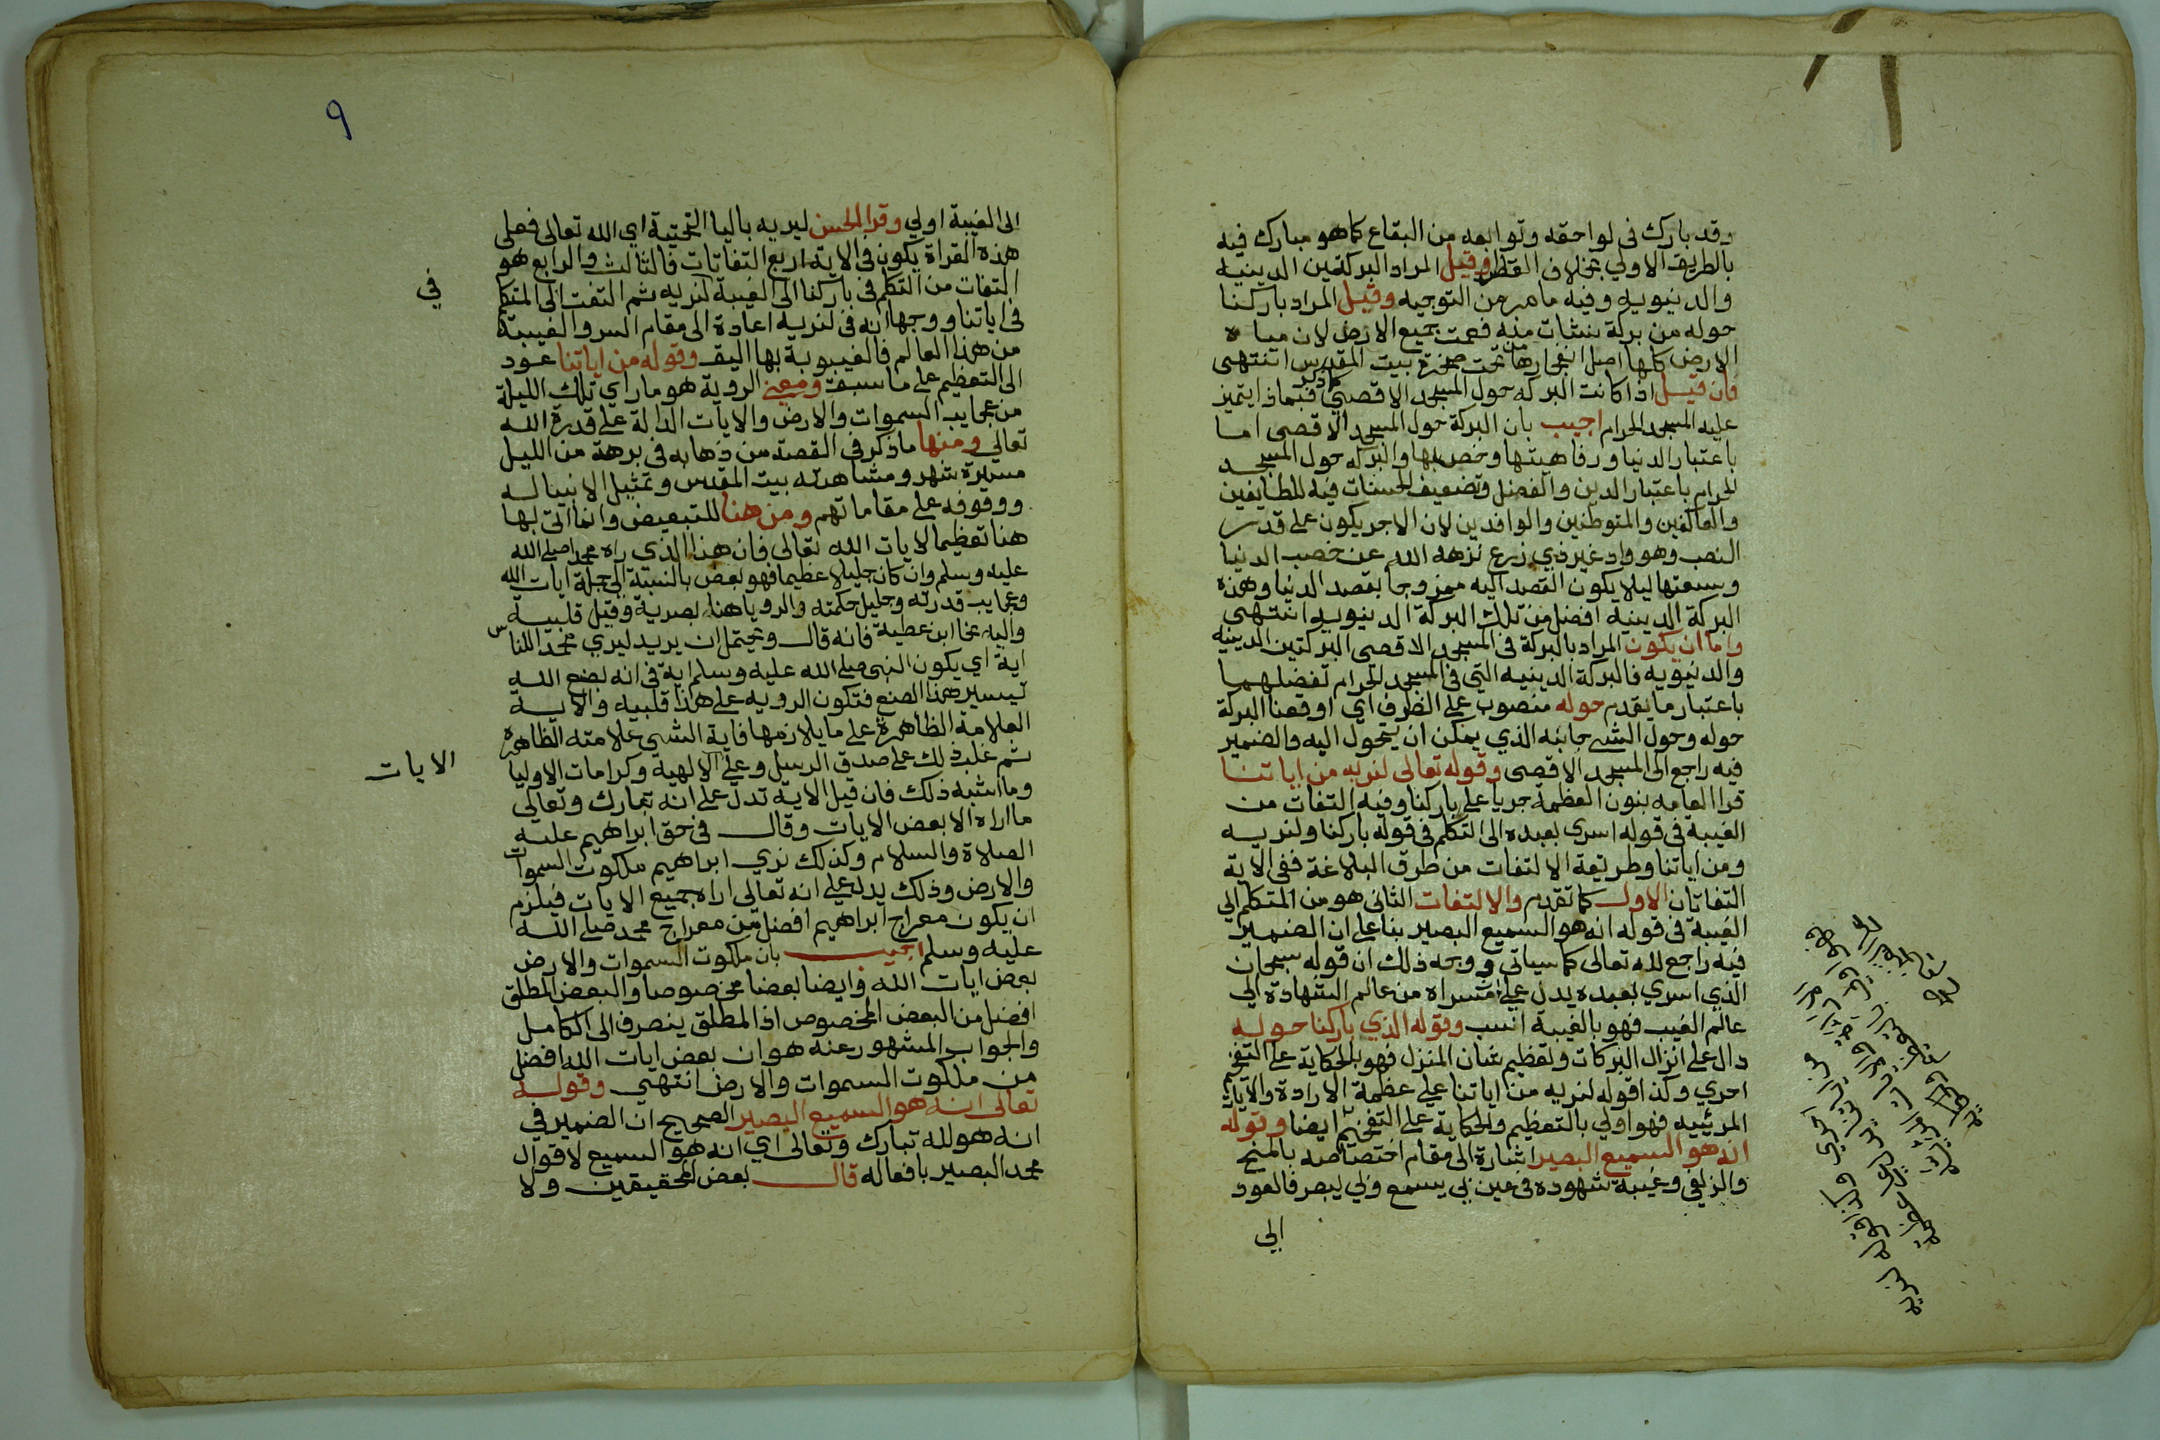 وقد بارك في لواحقه وتوابعه من البقاع كما هو مبارك فيه
بالطريق الاولي بخلاف العكس وقيل المراد البركتين الدينيه
والدنيويه وفيه ما مر من التوجيه وقيل المراد باركنا
حوله من بركة نشات منه فعمت جميع الارض لان مياه
الارض كلها اصل انفجارها من تحت صخرة بيت المقدس انتهى
فان قيل اذا كانت البركه حول المسجد الاقصي فبماذا يتميز
عليه المسجد الحرام اجيب بان البركة حول المسجد الاقصى اما
باعتبار الدنيا ورفاهيتها وخصبها والبركه حول المسجد
الحرام باعتبار الدين والفضل وتضعيف الحسنات فيه للطايفين
والعاكفين والمتوطنين والوافدين لان الاجر يكون على قدر
النصب وهو واد غير ذي زرع نزهه الله عن خصب الدنيا
وسعتها ليلا يكون القصد اليه ممزوجا بقصد الدنيا وهذه
البركة الدينيه افضل من تلك البركة الدنيويه انتهى
واما ان يكون المراد بالبركة في المسجد الاقصى البركتين الدينيه
والدنيويه فالبركة الدينيه التي في المسجد الحرام تفضلهما
باعتبار ما تقدم حوله منصوب علي الظرف اي اوقعنا البركة
حوله وحول الشي جانبه الذي يمكن ان يتحول اليه والضمير
فيه راجع الى المسجد الاقصى وقوله تعالى لنريه من اياتنا
قرا العامه بنون العظمة جريا علي باركنا وفيه التفات من
الغيبة في قوله اسري بعبده الى التكلم في قوله باركنا ولنريه
ومن اياتنا وطريقة الالتفات من طرق البلاغة ففي الاية
التفاتان الاول كما تقدم والالتفات الثاني هو من المتكلم الي
الغيبة في قوله انه هو السميع البصير بنا على ان الضمير
فيه راجع لله تعالى كما سياتي ووجه ذلك ان قوله سبحان
الذي اسري بعبده يدل علي مسراه من عالم الشهادة الي
عالم الغيب فهو بالغيبة انسب وقوله الذي باركنا حوله
دال على انزال البركات وتعظيم شان المنزل فهو بالحكاية على التفخيم
احري وكذا قوله لنريه من اياتنا علي عظمة الارادة والآيات
المرئيه فهو اولي بالتعظيم والحكاية على التفخيم ايضا وقوله
انه هو السميع البصير اشارة الى مقام اختصاصه بالمنح
والزلفي وغيبة شهوده في عين بي يسمع وبي يبصر فالعود
الي
٩
الى الغيبة اولي وقرا الحسن ليريه باليا التحتية اي الله تعالى فعلي
هذه القراة يكون في الاية اربع التفاتات فالثالث والرابع هو
التفات من التكلم في باركنا الى الغيبة لنريه ثم التفت الى المتكلم
في
في اياتنا ووجهها انه في لنريه اعادة الى مقام السر والغيبة
من هذا العالم فالغيبوبة بها اليق وقوله من اياتنا عود
الى التعظيم على ما سبق ومعنى الروية هو ما راي تلك الليلة
من عجايب السموات والارض والايات الدالة على قدرة الله
تعالي ومنها ما ذكر في القصة من ذهابه في برهة من الليل
مسيرة شهر ومشاهدته بيت المقدس وتمثيل الانبيا له
ووقوفه على مقاماتهم ومن هنا للتبعيض وانما اتى بها
هنا تعظيما لايات الله تعالى فان هذا الذي راه محمد صلى الله
عليه وسلم وان كان جليلا عظيما فهو بعض بالنسبة الى جملة ايات الله
وعجايب قدرته وجليل حكمته والرويا هنا بصرية وقيل قلبية
واليه نحا ابن عطية فانه قال ويحتمل ان يريد ليري محمد اللناس
اية اي يكون النبي صلى الله عليه وسلم اية في انه يصنع الله
تيسير هذا الصنع فتكون الرويه على هذا قلبيه والاية
العلامة الظاهرة على ما يلازمها فاية الشي علامته الظاهرة
ثم غلب ذلك على صدق الرسل وعلى الالهية وكرامات الاوليا
وما اشبه ذلك فان قيل الاية تدل علي انه تبارك وتعالى
الايات
ما اراه الا بعض الايات وقال في حق ابراهيم عليه
الصلاة والسلام وكذلك نري ابراهيم ملكوت السموات
والارض وذلك يدل على انه تعالى اراه جميع الايات فيلزم
ان يكون معراج ابراهيم افضل من معراج محمد صلى الله
عليه وسلم اجيب بان ملكوت السموات والارض
بعض ايات الله وايضا بعضا مخصوصا والبعض المطلق
افضل من البعض المخصوص اذ المطلق ينصرف الى الكامل
والجواب المشهور عنه هو ان بعض ايات الله افضل
من ملكوت السموات والارض انتهى وقوله
تعالى انه هو السميع البصير الصحيح ان الضمير في
انه هو لله تبارك وتعالى اي انه هو السميع لاقوال
محمد البصير بافعاله قال بعض المحقيقين ولا